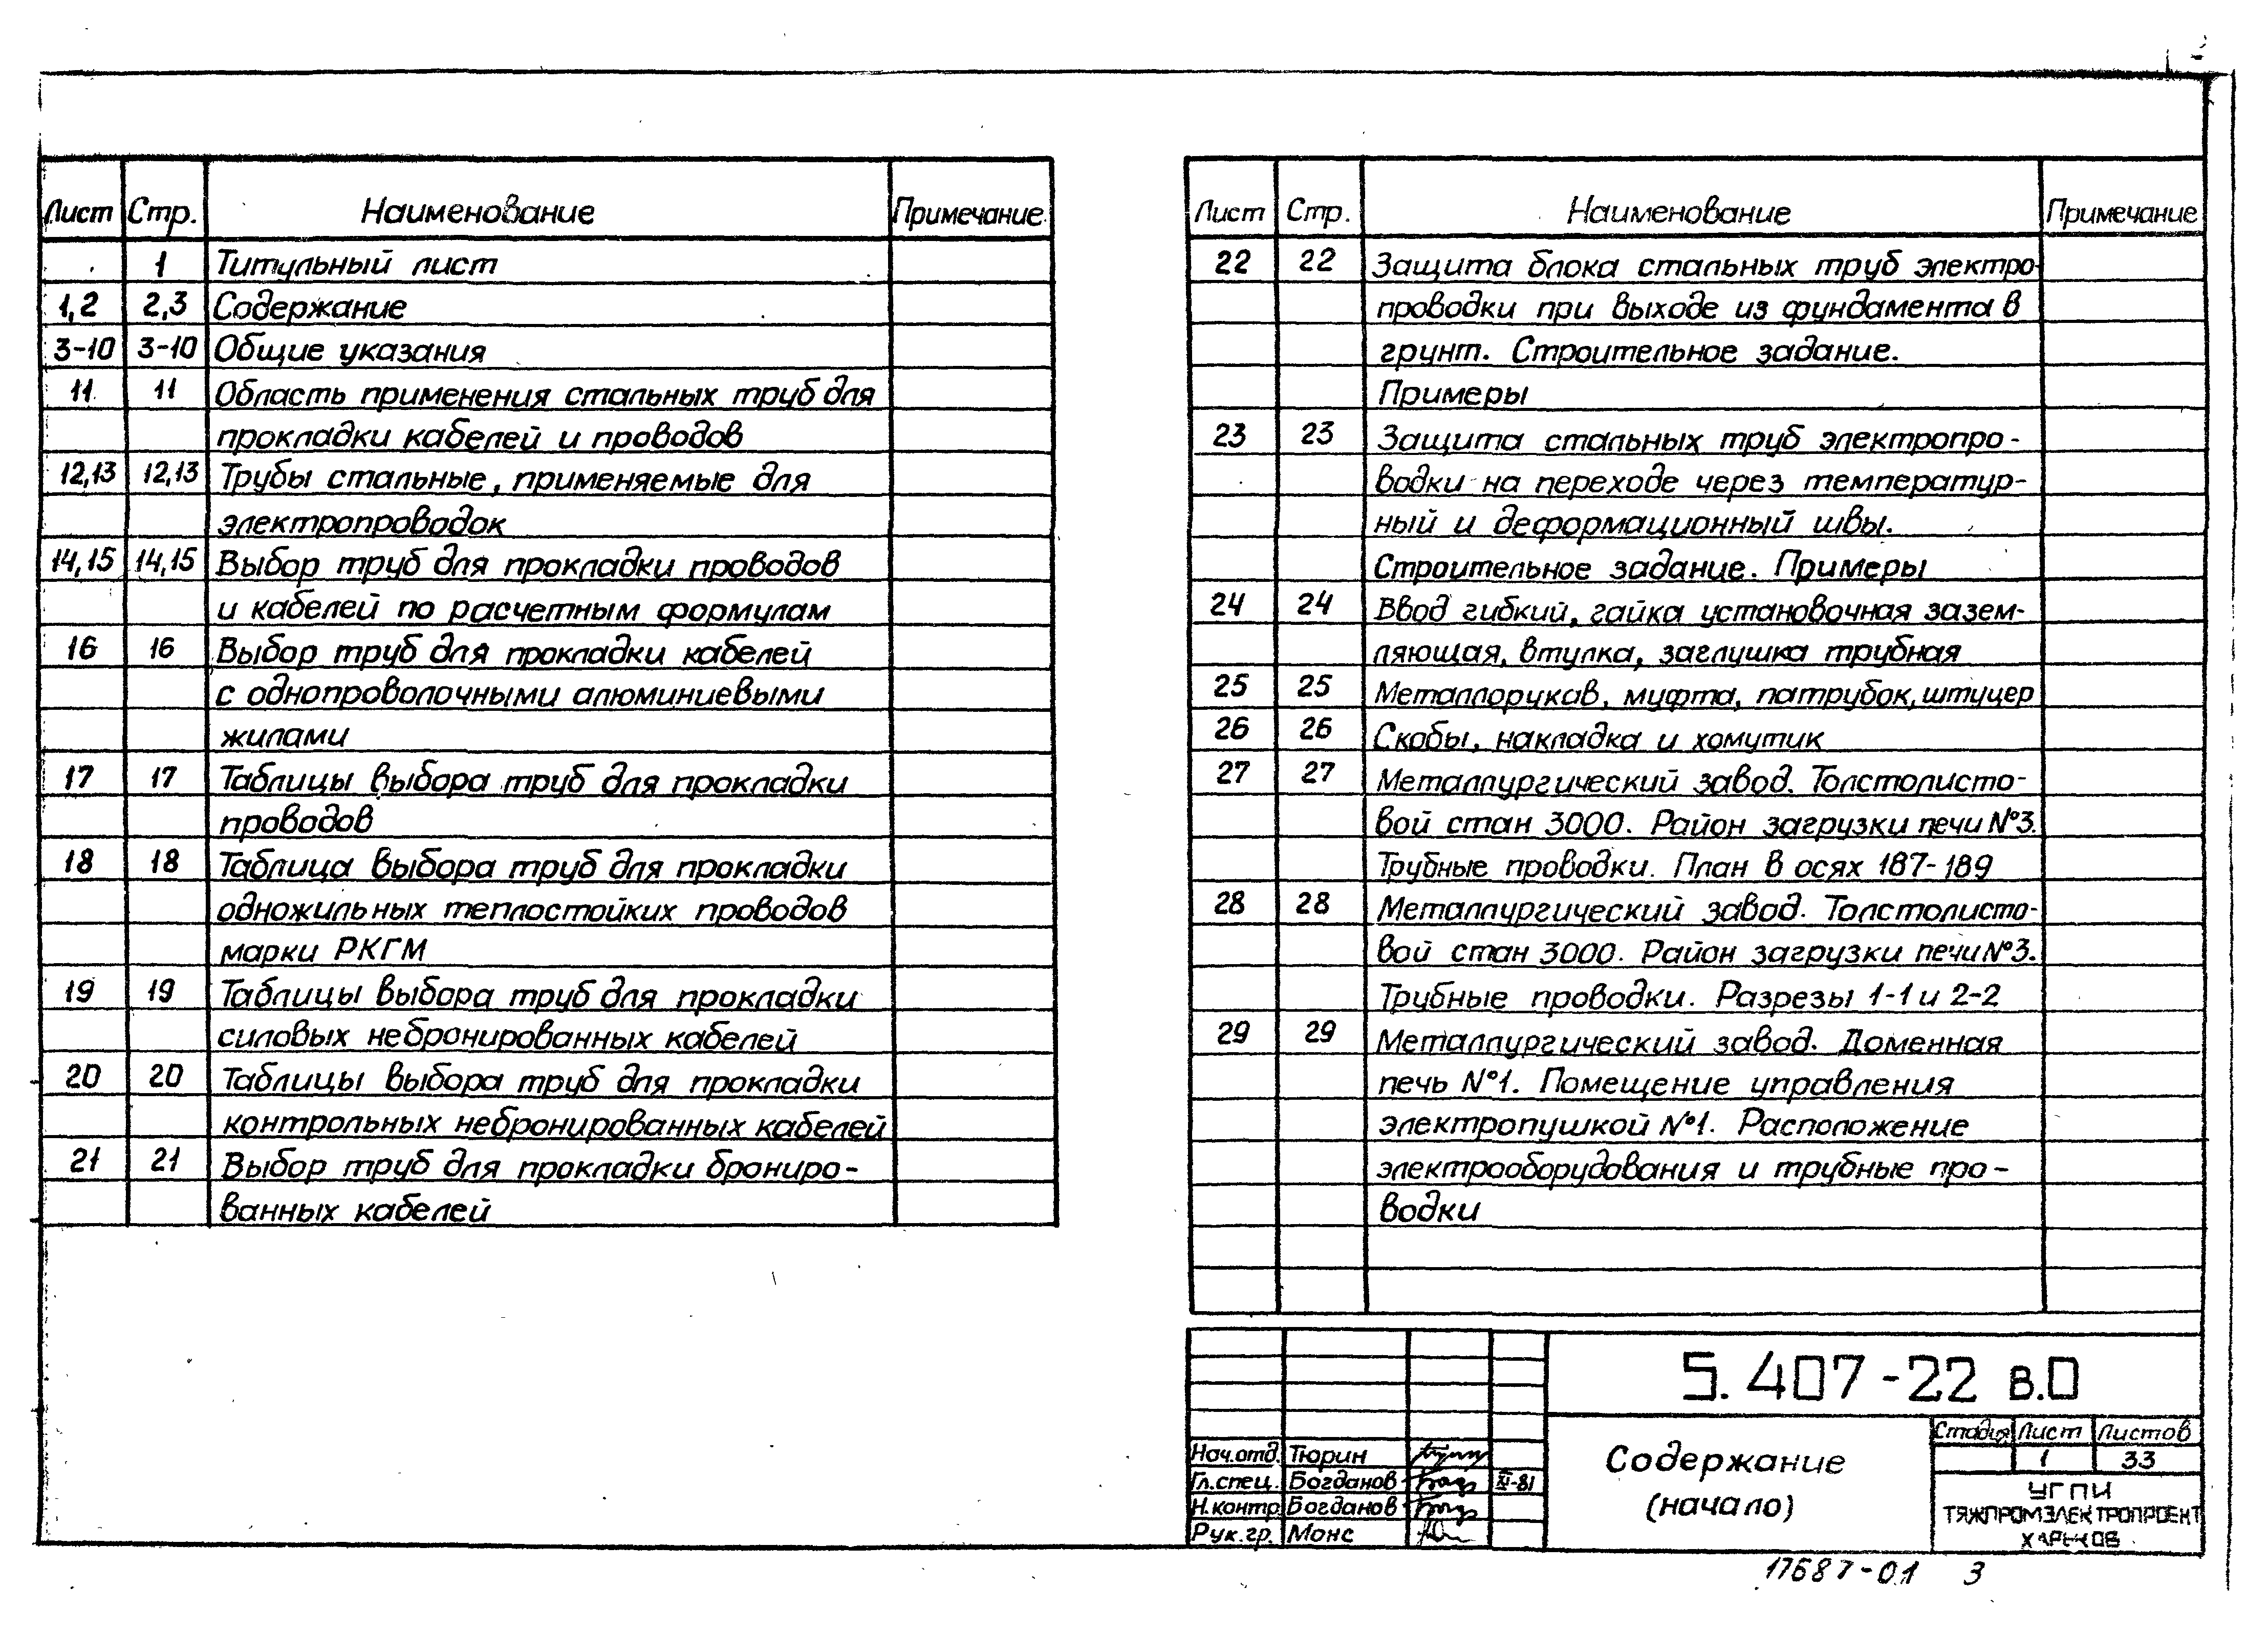 Лист Стр. Наименование Примечание
1 Титульный лист
1,2 2,3 Содержание
3-10 3-10 Общие указания
11 11 Область применения стальных труб для
прокладки кабелей и проводов
12,13 12,13 Трубы стальные, применяемые для
электропроводок
14,15 14,15 Выбор труб для прокладки проводов
и кабелей по расчетным формулам
16 16 Выбор труб для прокладки кабелей
с однопроволочными алюминиевыми
жилами
17 17 Таблицы выбора труб для прокладки
проводов
18 18 Таблица выбора труб для прокладки
одножильных теплостойких проводов
марки РКГМ
19 19 Таблицы выбора труб для прокладки
силовых небронированных кабелей
20 20 Таблицы выбора труб для прокладки
контрольных небронированных кабелей
21 21 Выбор труб для прокладки брониро-
ванных кабелей
Лист Стр. Наименование Примечание
22 22 Защита блока стальных труб электро-
проводки при выходе из фундамента в
грунт. Строительное задание.
Примеры
23 23 Защита стальных труб электропро-
водки на переходе через температур-
ный и деформационный швы.
Строительное задание. Примеры
24 24 Ввод гибкий, гайка установочная зазем-
ляющая, втулка, заглушка трубная
25 25 Металлорукав, муфта, патрубок, штуцер
26 26 Скобы, накладка и хомутик
27 27 Металлургический завод. Толстолисто-
вой стан 3000. Район загрузки печи №3.
Трубные проводки. План в осях 187-189
28 28 Металлургический завод. Толстолисто-
вой стан 3000. Район загрузки печи №3.
Трубные проводки. Разрезы 1-1 и 2-2
29 29 Металлургический завод. Доменная
печь №1. Помещение управления
электропушкой №1. Расположение
электрооборудования и трубные про-
водки
5.407-22 в.0
Нач.отд. Тюрин
Гл.спец. Богданов XI-81
Н.контр. Богданов
Рук.гр. Монс
Содержание
(начало)
Стадия Лист Листов
1 33
УГПИ
ТЯЖПРОМЭЛЕКТРОПРОЕКТ
ХАРЬКОВ
17687-01 3